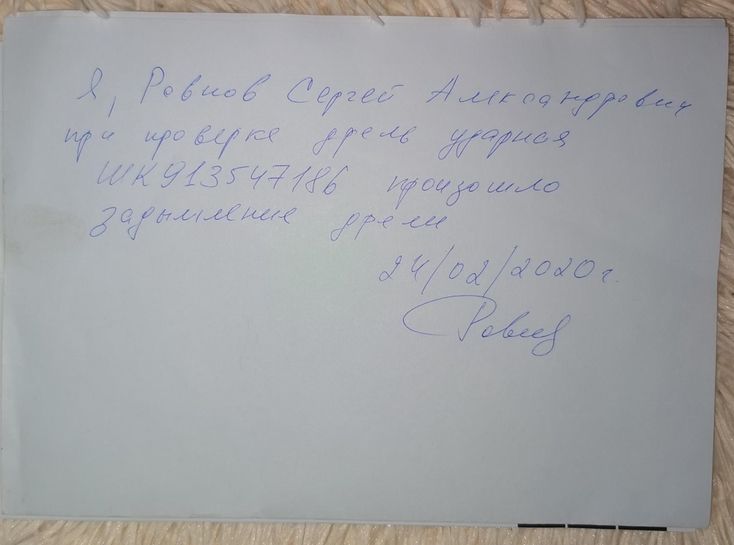 Я, Ровнов Сергей Александрович
при проверке дрель ударная
ШК913547186 произошло
задымление дрели
24/02/2020г.